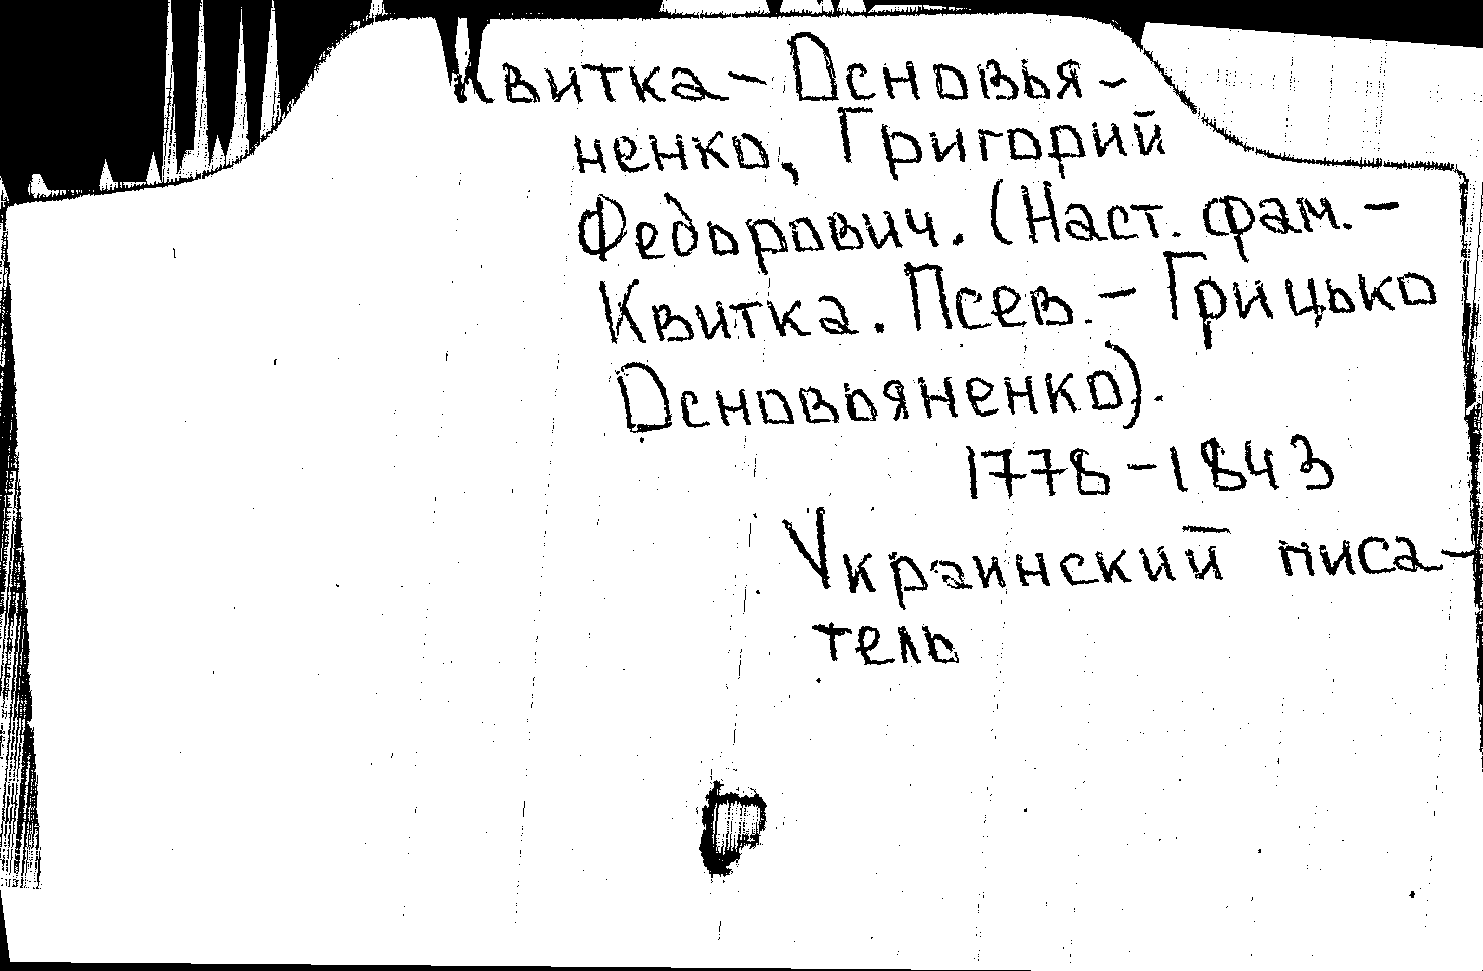 Квитка-Основья-
ненко, Григорий
Федорович. (Наст. фам. -
Квитка. Псев. - Грицько
Основьяненко).
1778-1843
Украинский писа-
тель